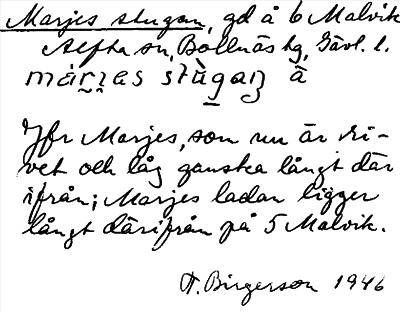 Marjes stugan, gd å 6 Malvik
Alfta sn, Bollnäs tg, Gävl. l.
màrjəs stùgaṇ å
Jfr Marjes, som nu är ri-
vet och låg ganska långt där
ifrån; Marjes ladan ligger
långt därifrån på 5 Malvik.
A. Birgerson 1946